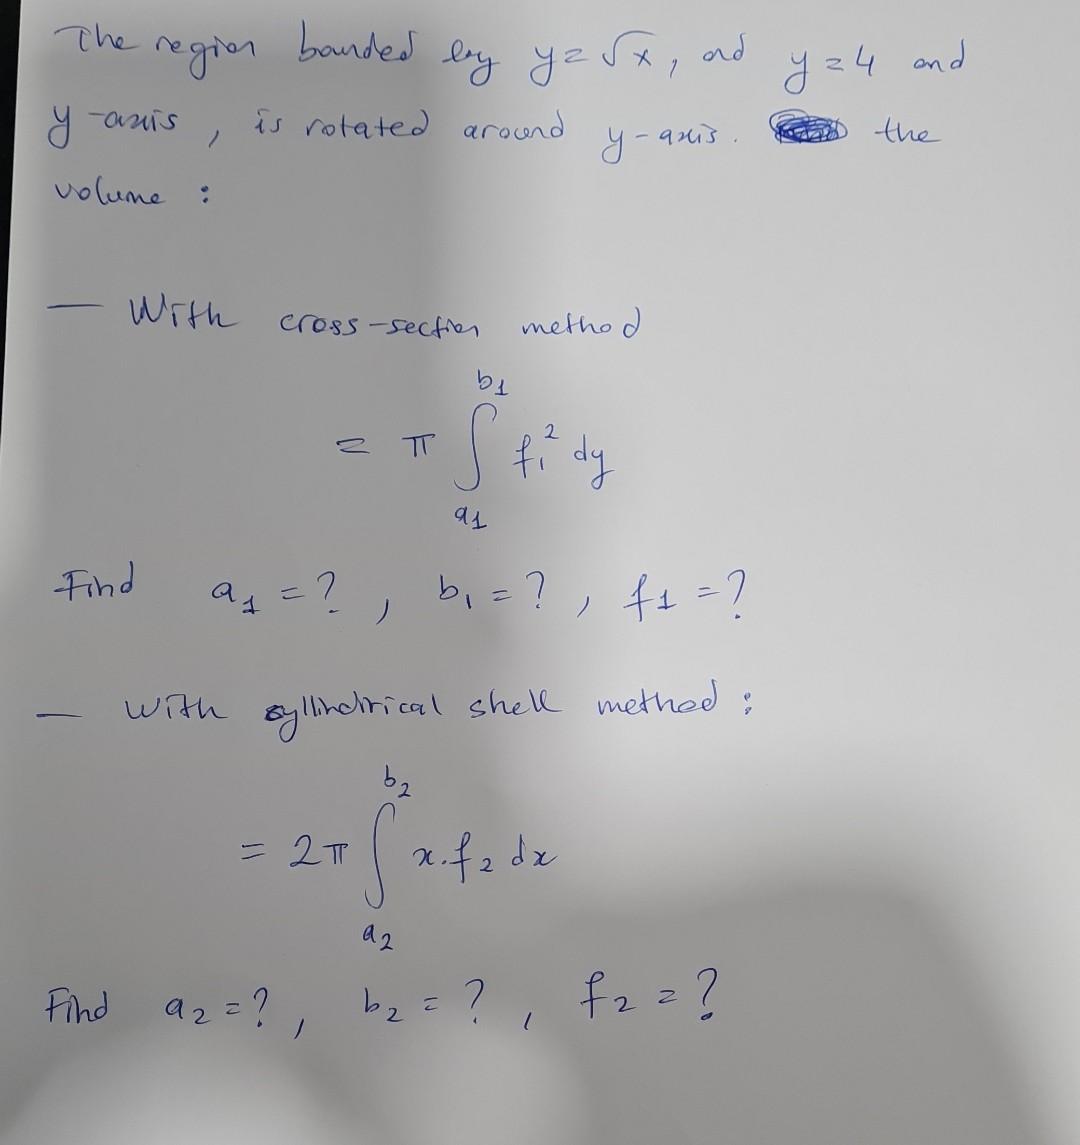 The region bounded by y=√x, and y=4 and
y-axis, is rotated around y-axis. the
volume :
— With cross-section method
b1
= π ∫ f₁² dy
a1
Find a1 = ?, b₁ = ?, f1 = ?
— with cyllindrical shell method :
b2
= 2π ∫ x.f2 dx
a2
Find a2 = ?, b2 = ?, f2 = ?